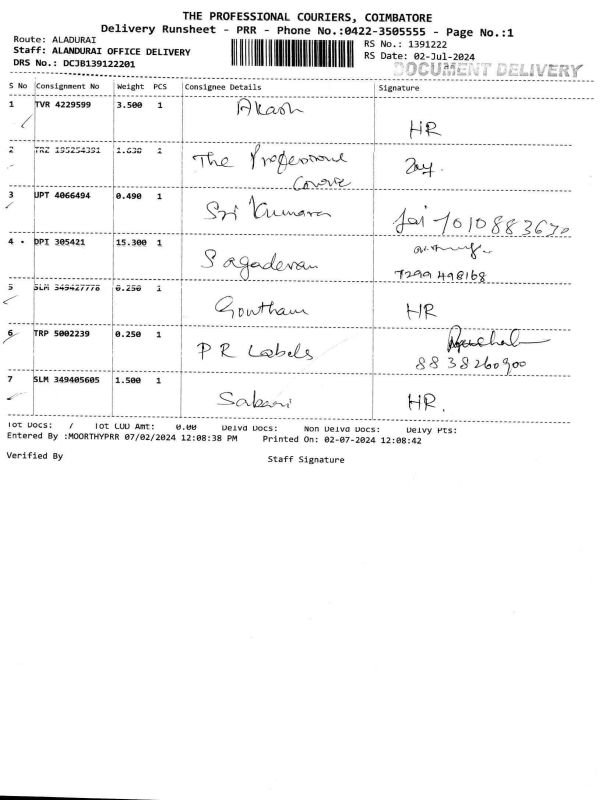 THE PROFESSIONAL COURIERS, COIMBATORE
Delivery Runsheet - PRR - Phone No.:0422-3505555 - Page No.:1
Route: ALADURAI
RS No.: 1391222
Staff: ALANDURAI OFFICE DELIVERY
RS Date: 02-Jul-2024
DRS No.: DCJB139122201
DOCUMENT DELIVERY
S No Consignment No Weight PCS Consignee Details Signature
1 TVR 4229599 3.500 1 Akash
HR
2 TRZ 195254391 1.630 1 The Professional
Courier
3 UPT 4066494 0.490 1 Sri Kumaran
Jai 7010883670
4 DPI 305421 15.300 1 Sagadevan
7299 498168
5 SLM 349427778 0.250 1 Gowtham HR
6 TRP 5002239 0.250 1 PR Labels
8838260900
7 SLM 349405605 1.500 1 Sabari HR.
Tot Docs: 7 Tot COD Amt: 0.00 Delvd Docs: Non Delvd Docs: Delvy Pts:
Entered By :MOORTHYPRR 07/02/2024 12:08:38 PM Printed On: 02-07-2024 12:08:42
Verified By Staff Signature